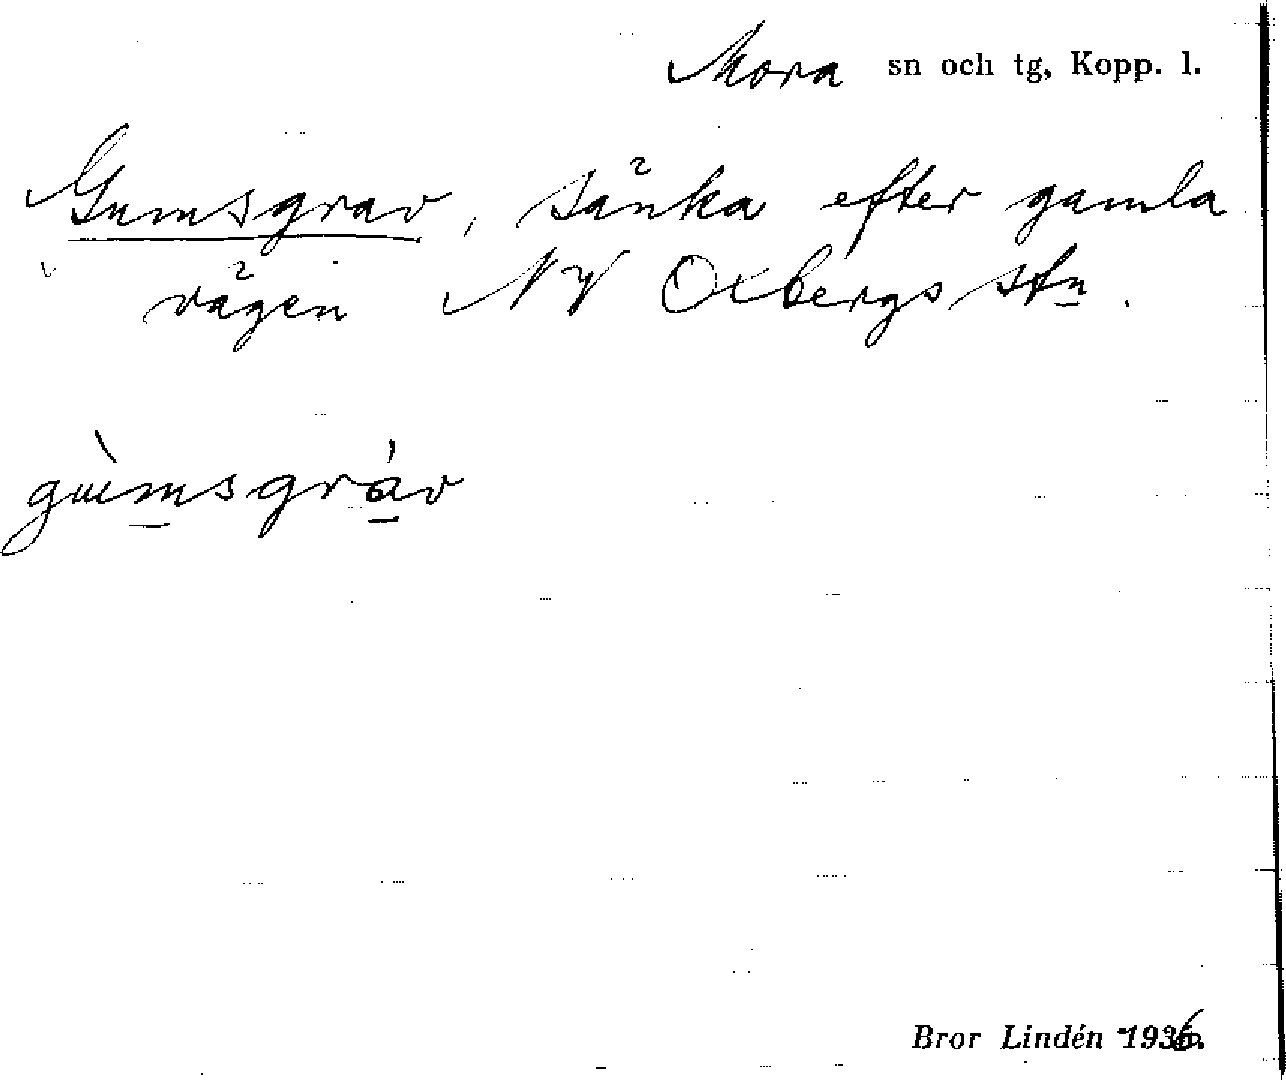 Mora sn och tg, Kopp. l.
Gumsgrav, sänka efter gamla
vägen NV Oxbergs stn.
gùmsgráv
Bror Lindén 1936.